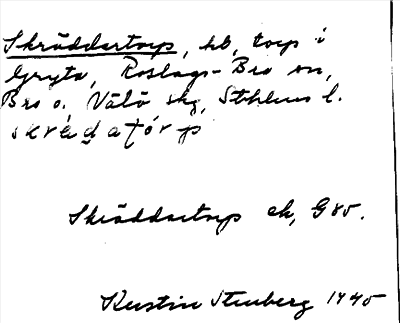 Skräddartorp, hb, torp i
Gryta, Roslags-Bro sn,
Bro o. Vätö skg, Sthlms l.
Skräddartorp ek, G85.
Kerstin Stenberg 1945